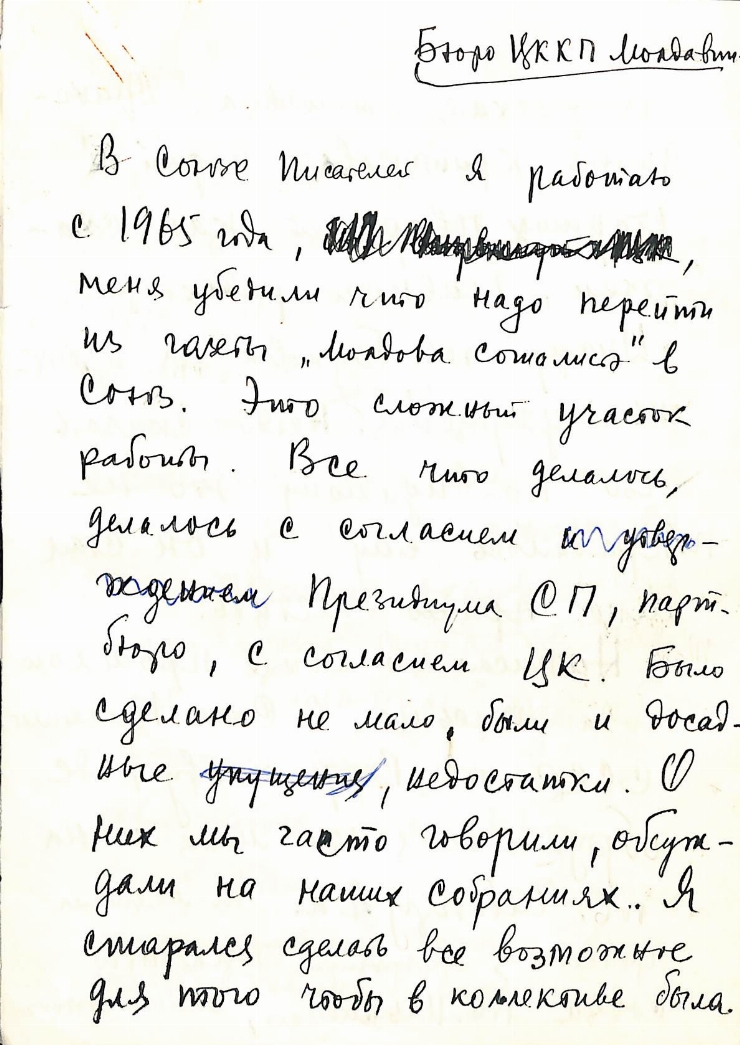 Бюро ЦККП Молдавии
В Союзе Писателей я работаю
с 1965 года, ,
меня убедили что надо перейти
из газеты „Молдова сочиалистэ" в
Союз. Это сложный участок
работы. Все что делалось,
делалось с согласием и утвер-
ждением Президиума СП, парт-
бюро, с согласием ЦК. Было
сделано не мало, были и досад-
ные упущения, недостатки. О
них мы часто говорили, обсуж-
дали на наших собраниях.. Я
старался сделать все возможное
для того чтобы в коллективе была